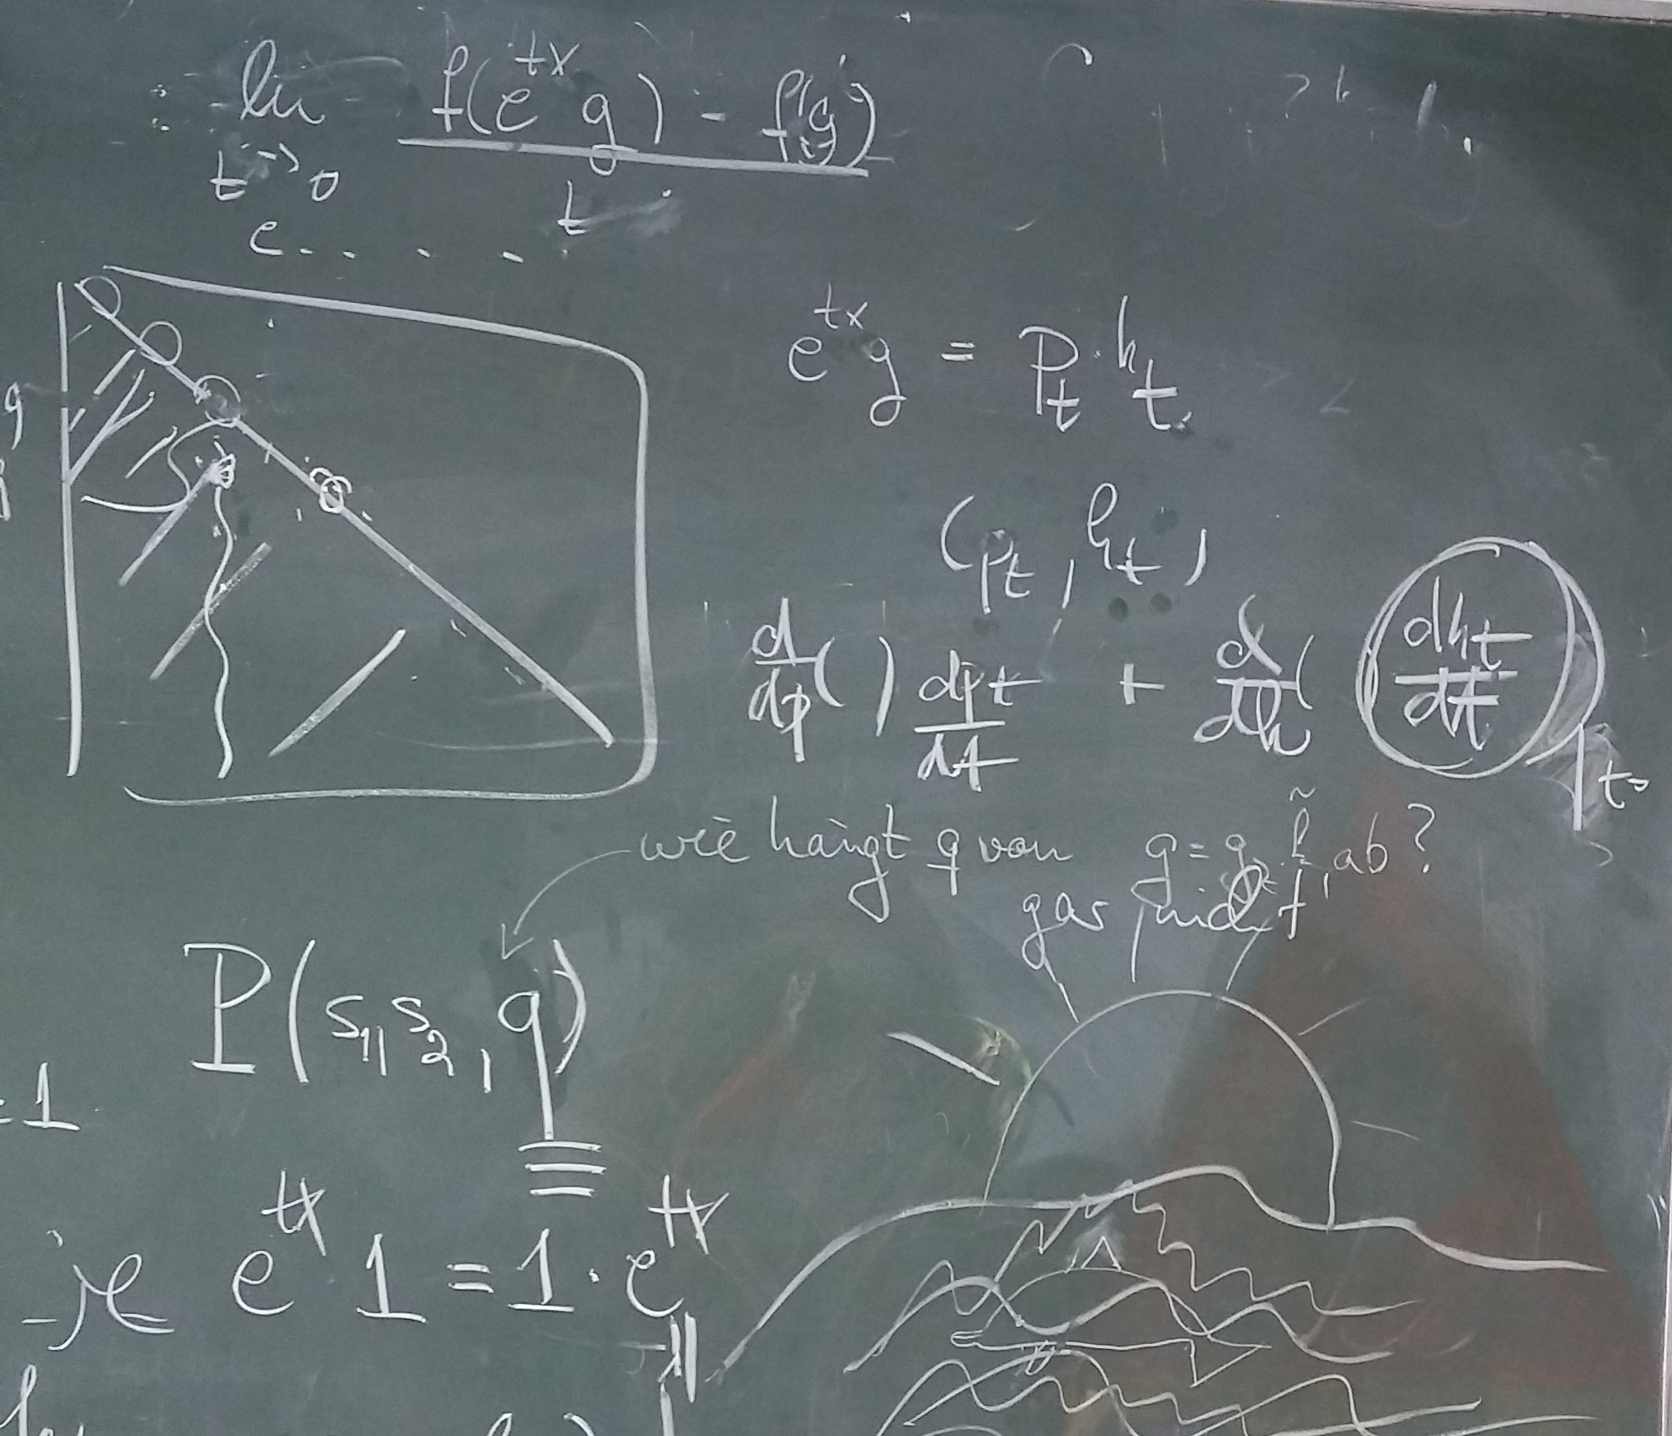 lim f(e^{tx} g) - f(g)
t→0 t
e . . . .
e^{tx} g = p_t · h_t
q
(p_t, h_t)
d/dp ( ) dp_t/dt + d/dh ( dh_t/dt | t=
wie hängt q von g = g h̃ ab?
gar nicht
P(s_1, s_2, q)
= 1
e^{tx} 1 = 1 · e^{tx}